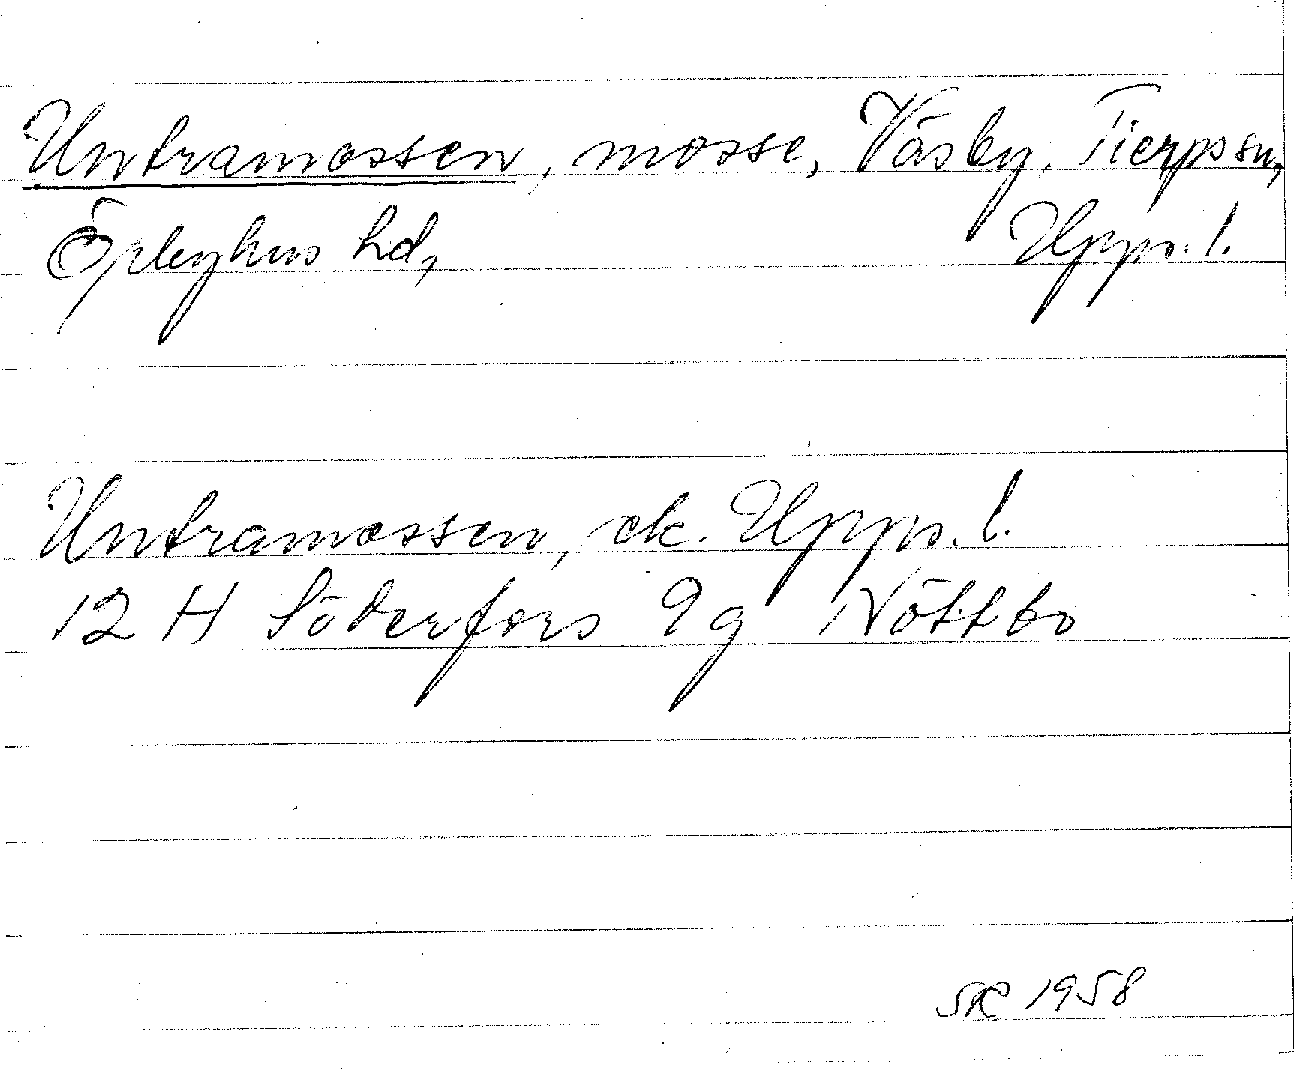 Untramossen, mosse, Väsby, Tierps sn,
Örbyhus hd, Upps. l.
Untramossen, ek. Upps. l.
12 H Söderfors 9g Nöttbo
SR 1958